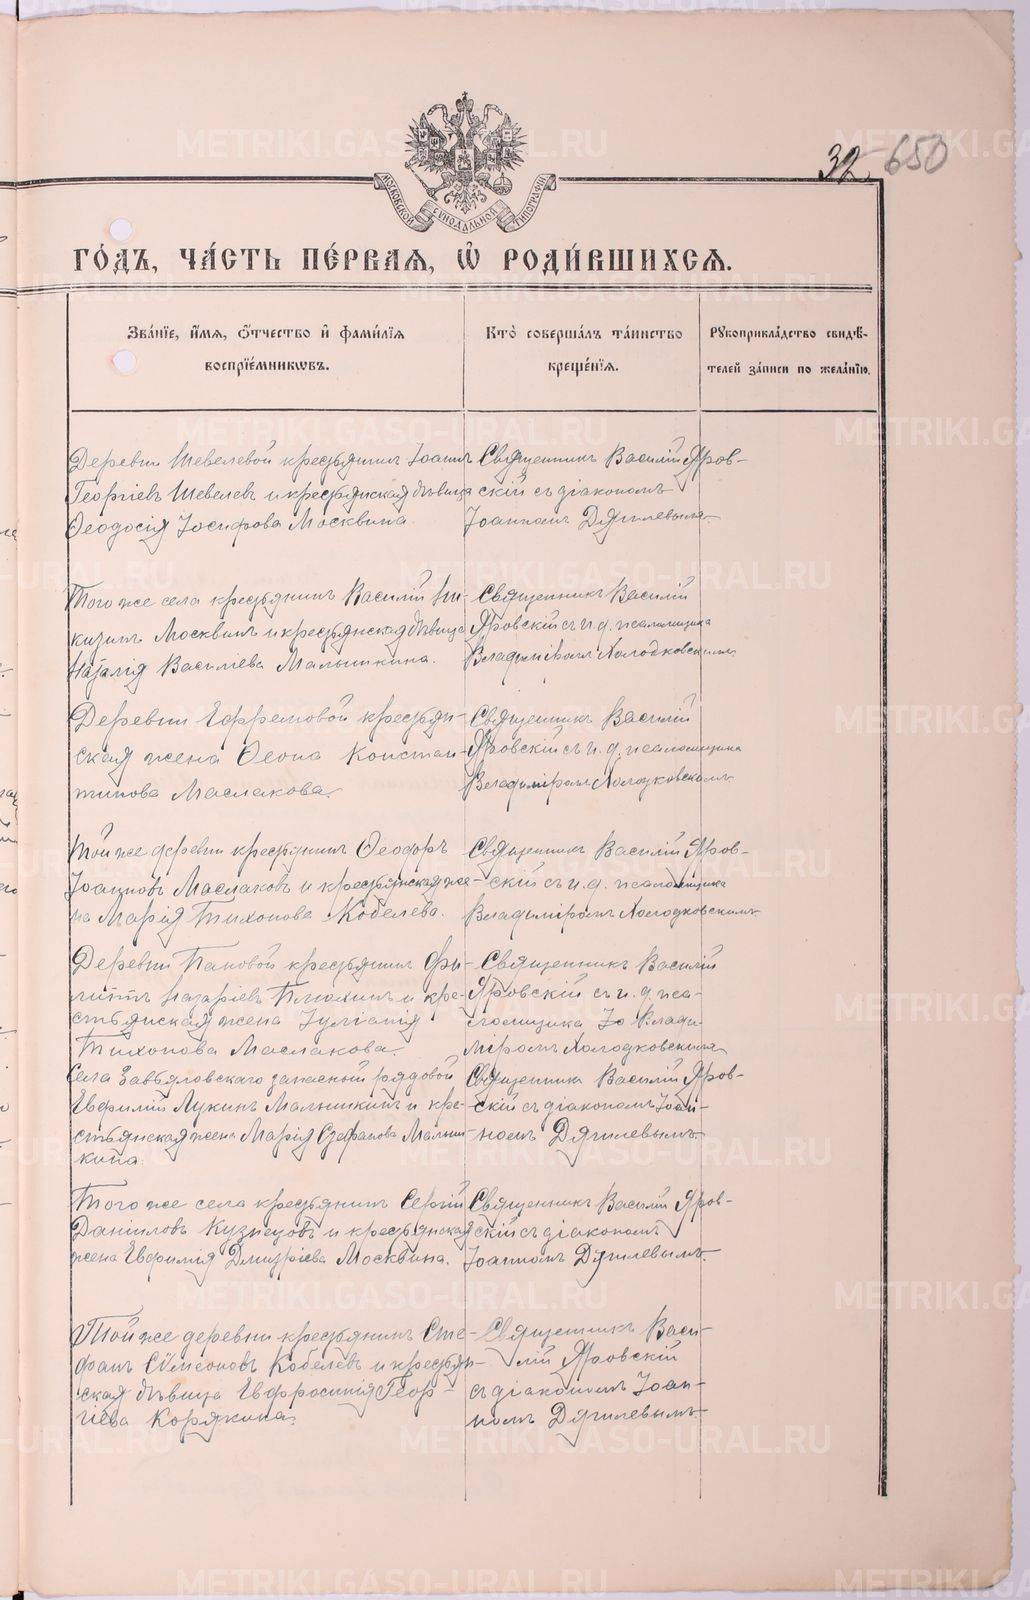 32. 650
МОСКОВСКОЙ СѴНОДАЛЬНОЙ ТИПОГРАФІИ
ГО́ДЪ, ЧА́СТЬ ПЕ́РВАЯ, Ѽ РОДИ́ВШИХСЯ.
ЗВА́НІЕ, И҆́МЯ, Ѻ҆́ТЧЕСТВО И҆ ФАМИ́ЛІЯ
ВОСПРІЕ́МНИКѠВЪ.
КТО̀ СОВЕРША́ЛЪ ТА́ИНСТВО
КРЕЩЕ́НІЯ.
РꙋКОПРИКЛА́ДСТВО СВИДѢ́-
ТЕЛЕЙ ЗА́ПИСИ ПО ЖЕЛА́НІЮ.
Деревни Шевелевой крестьянинъ Іоаннъ
Георгіевъ Шевелевъ и крестьянская дѣвица
Ѳеодосія Іосифова Москвина.
Священникъ Василій Яров-
скій съ діакономъ
Іоанномъ Дягилевымъ
Того же села крестьянинъ Василій Ни-
китинъ Москвинъ и крестьянская дѣвица
Наталія Васильева Малышкина.
Священникъ Василій
Яровскій съ и. д. псаломщика
Владиміромъ Холодковскимъ
Деревни Ефремовой крестьян-
ская жена Ѳеона Констан-
тинова Маслакова.
Священникъ Василій
Яровскій съ и. д. псаломщика
Владиміромъ Холодковскимъ
Той же деревни крестьянинъ Ѳеодоръ
Іоанновъ Маслаковъ и крестьянская же-
на Марія Тихонова Кобелева.
Священникъ Василій Яров-
скій съ и. д. псаломщика
Владиміромъ Холодковскимъ
Деревни Пановой крестьянинъ Фи-
липпъ Назаріевъ Плюхинъ и кре-
стьянская жена Іуліанія
Тихонова Маслакова.
Священникъ Василій
Яровскій съ и. д. пса-
ломщика Влади-
міромъ Холодковскимъ
Села Завьяловскаго запасной рядовой
Евфимій Лукинъ Малышкинъ и кре-
стьянская жена Марія Стефанова Малыш
кина.
Священника Василій Яров-
скій съ діакономъ Іоан-
номъ Дягилевымъ.
Того же села крестьянинъ Сергій
Даніиловъ Кузнецовъ и крестьянская
жена Евфимія Дмитріева Москвина.
Священникъ Василій Яров-
скій съ діакономъ
Іоанномъ Дягилевымъ.
Той же деревни крестьянинъ Сте-
фанъ Сѵмеоновъ Кобелевъ и крестьян-
ская дѣвица Евфросинія Геор-
гіева Корякина.
Священникъ Васи-
лій Яровскій
съ діакономъ Іоан-
номъ Дягилевымъ.